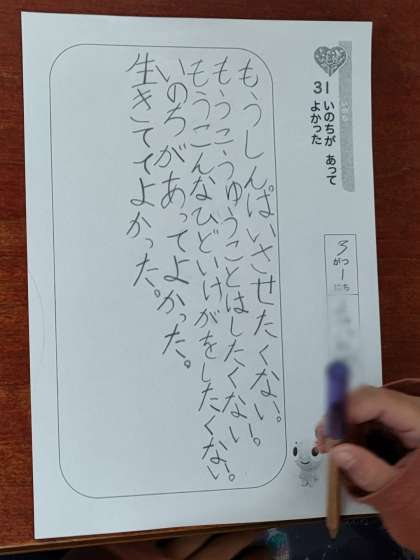 31 いのちが あって
よかった
3がつ1にち
もうしんぱいさせたくない。
もうこうゆうことはしたくない。
もうこんなひどいけがをしたくない。
いのちがあってよかった。
生きててよかった。